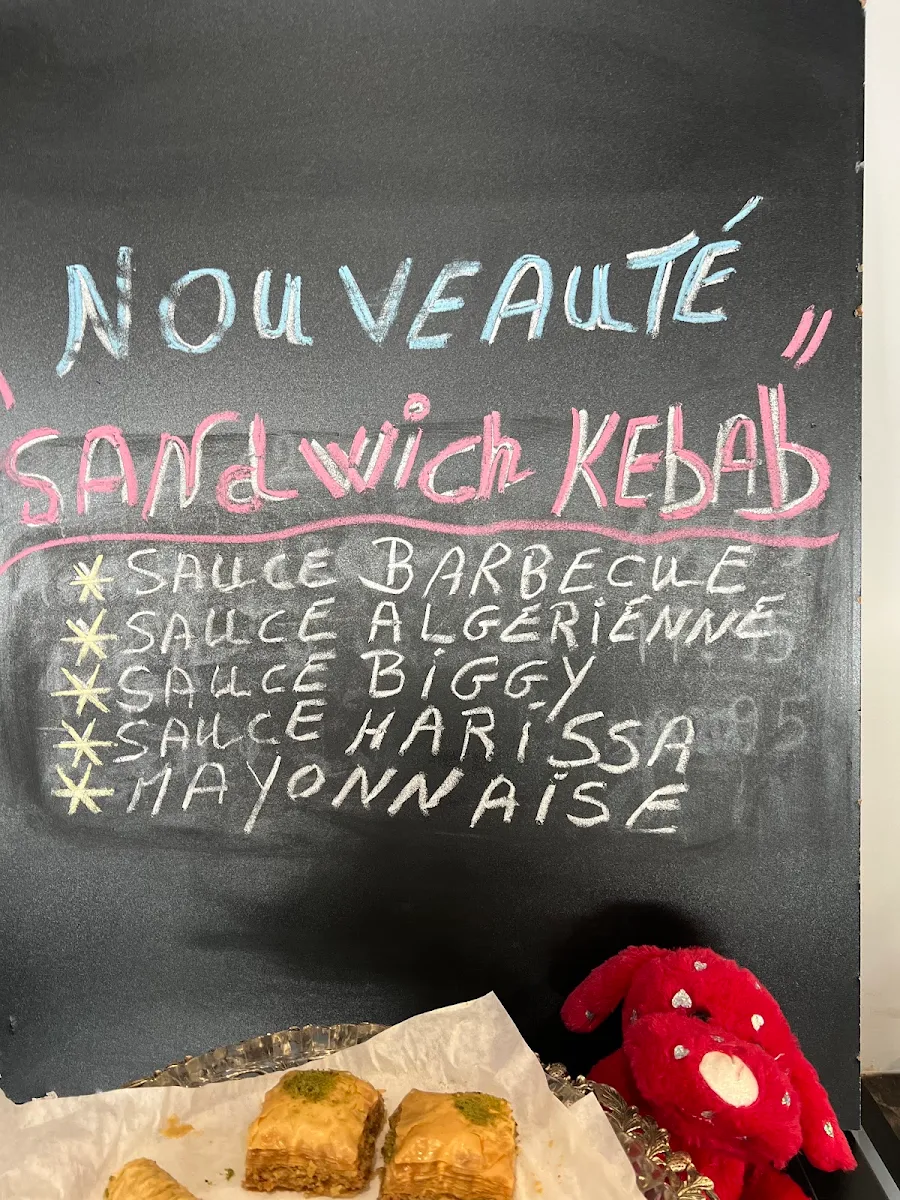 NOUVEAUTÉ
"SANdwich KEbAb"
* SAUCE BARBECUE
* SAUCE ALGERiENNE
* SAUCE BiGGY
* SAUCE HARiSSA
* MAYONNAiSE